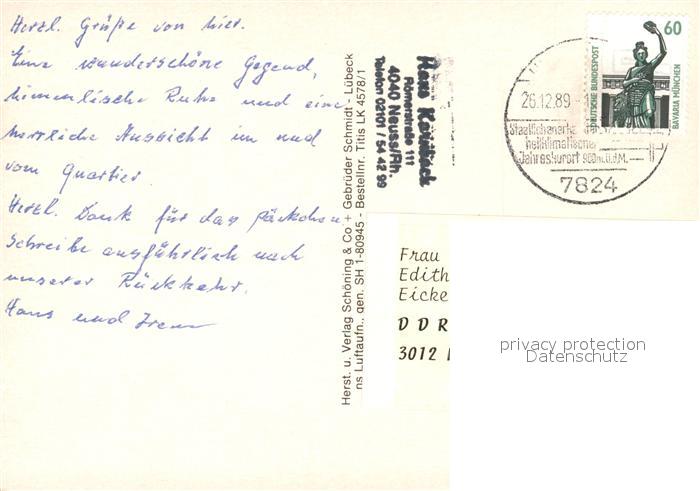 Herzl. Grüße von hier.
Eine wunderschöne Gegend,
himmlische Ruhe und eine
herrliche Aussicht im und
vom Quartier
Herzl. Dank für das Päckchen
Schreibe ausführlich nach
unserer Rückkehr.
Hans und Irene
Herst. u. Verlag Schöning & Co + Gebrüder Schmidt - Lübeck
ns Luftaufn., gen. SH 1-80945 - Bestellnr. Titis LK 4578/1
Hans
Römerstraße 111
4040 Neuss/Rh.
Telefon 02101 / 54 42 99
60
DEUTSCHE BUNDESPOST
BAVARIA MÜNCHEN
26.12.89
Staatlich
heilklimatischer
Jahreskurort 900m.ü.d.M.
7824
Frau
Edith
Eicke
DDR
3012
privacy protection
Datenschutz